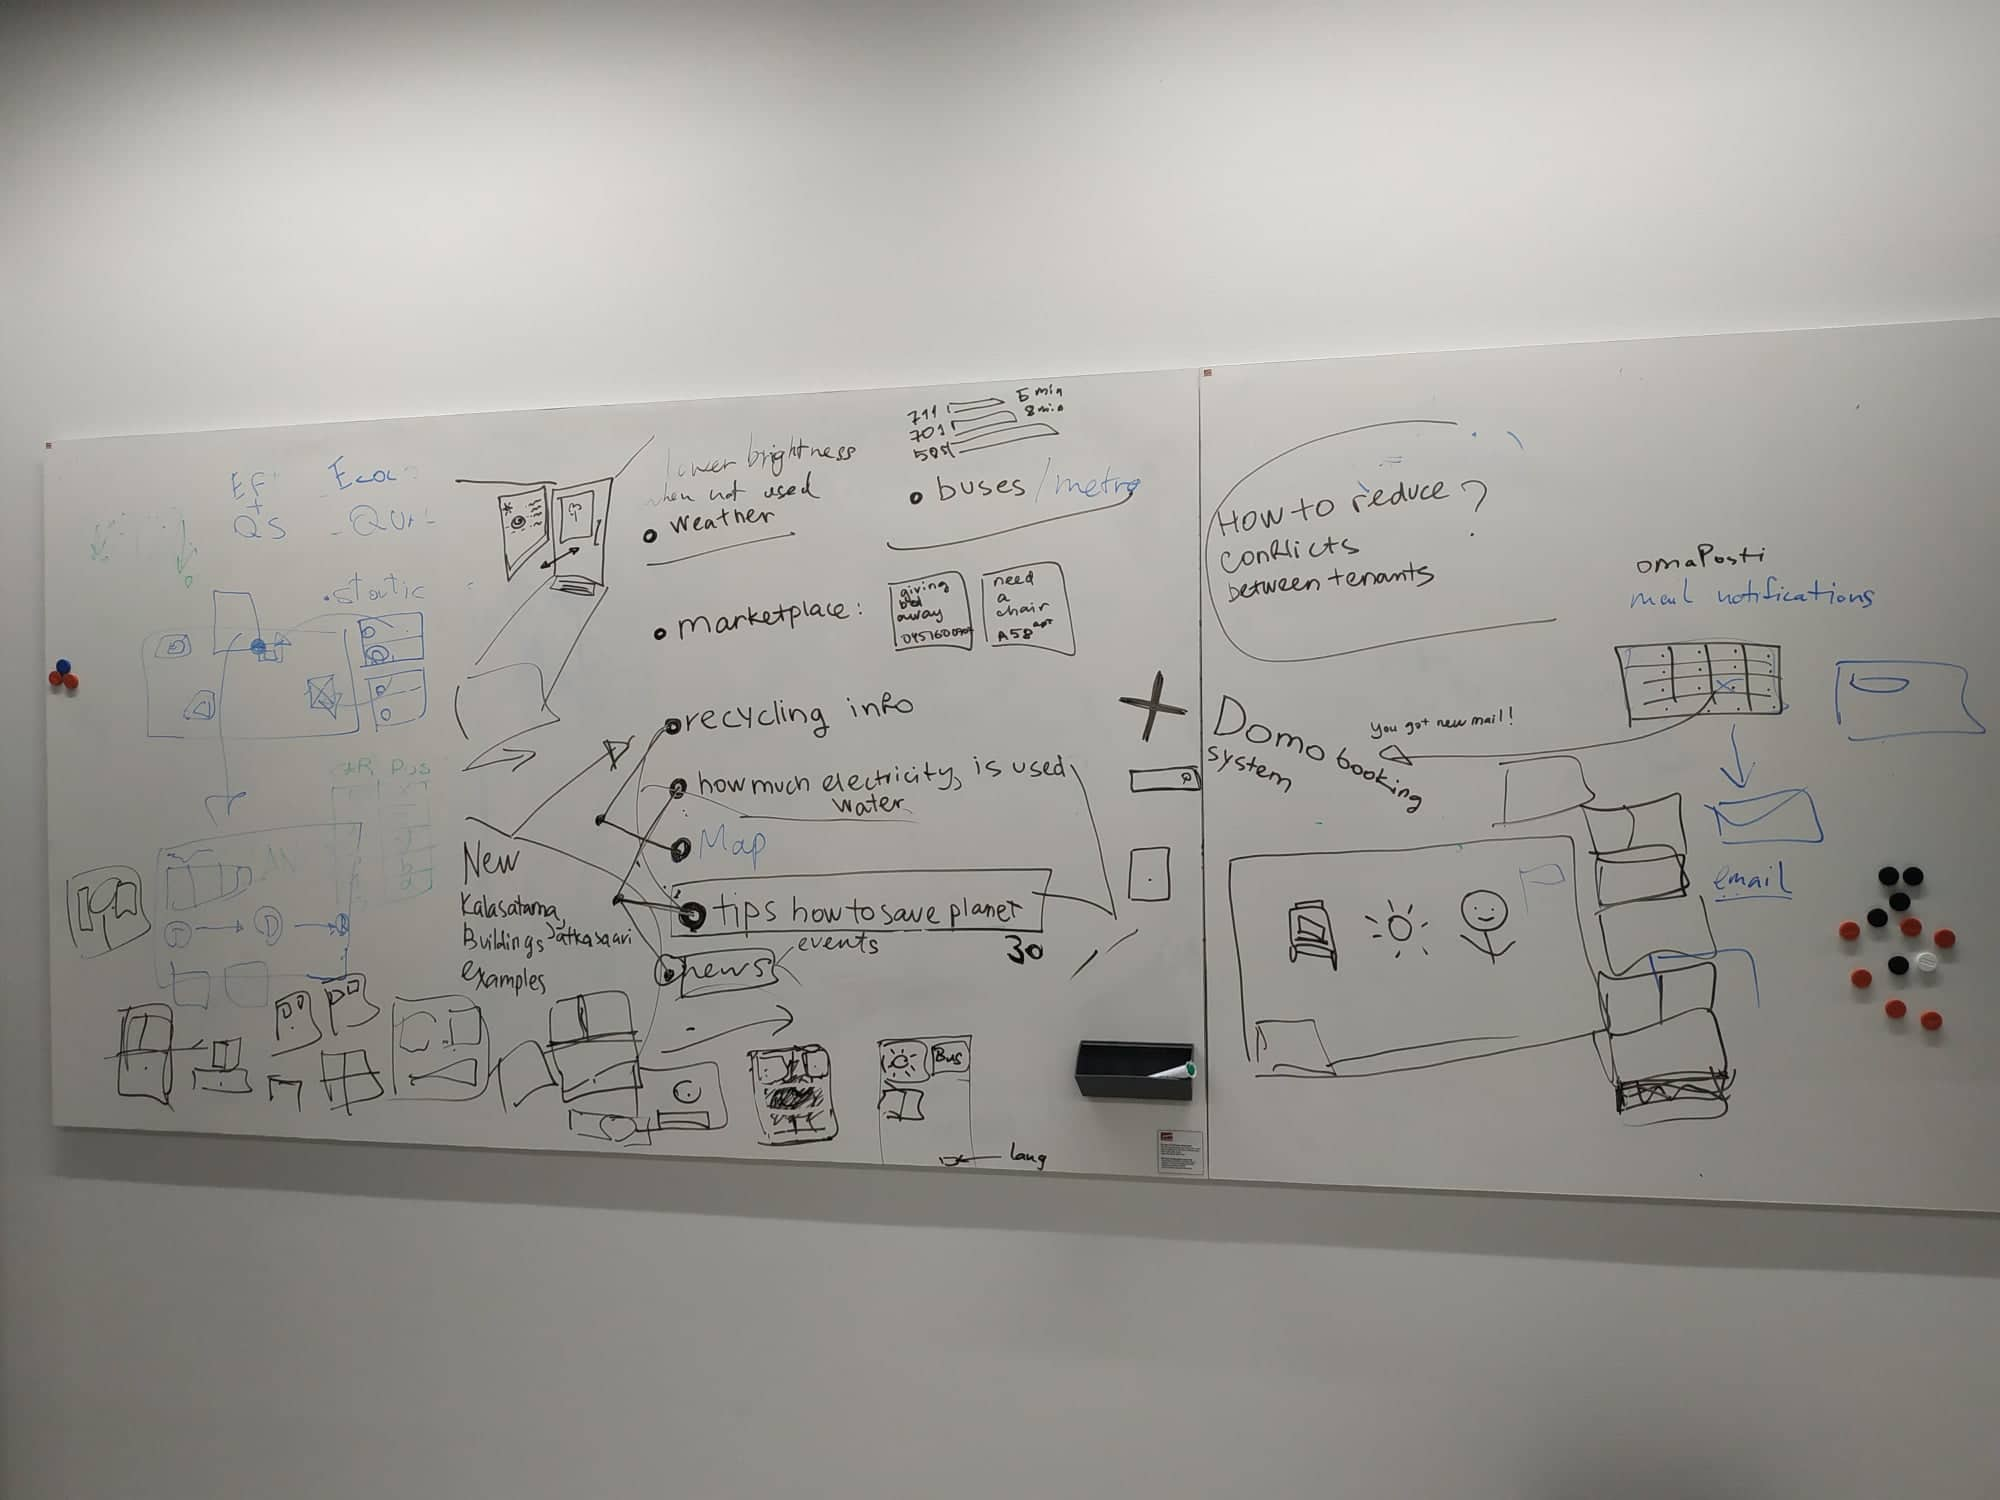 static
lower brightness
when not used
weather
711 5 min
701 8 min
buses / metro
marketplace:
giving
away
need
a
chair
A58 apt
recycling info
how much electricity, is used
water
Map
tips how to save planet
30
events
news
New
Kalasatama,
Buildings Jätkäsaari
examples
Bus
lang
How to reduce
conflicts
between tenants
?
omaPosti
mail notifications
You got new mail!
Domo booking
system
email